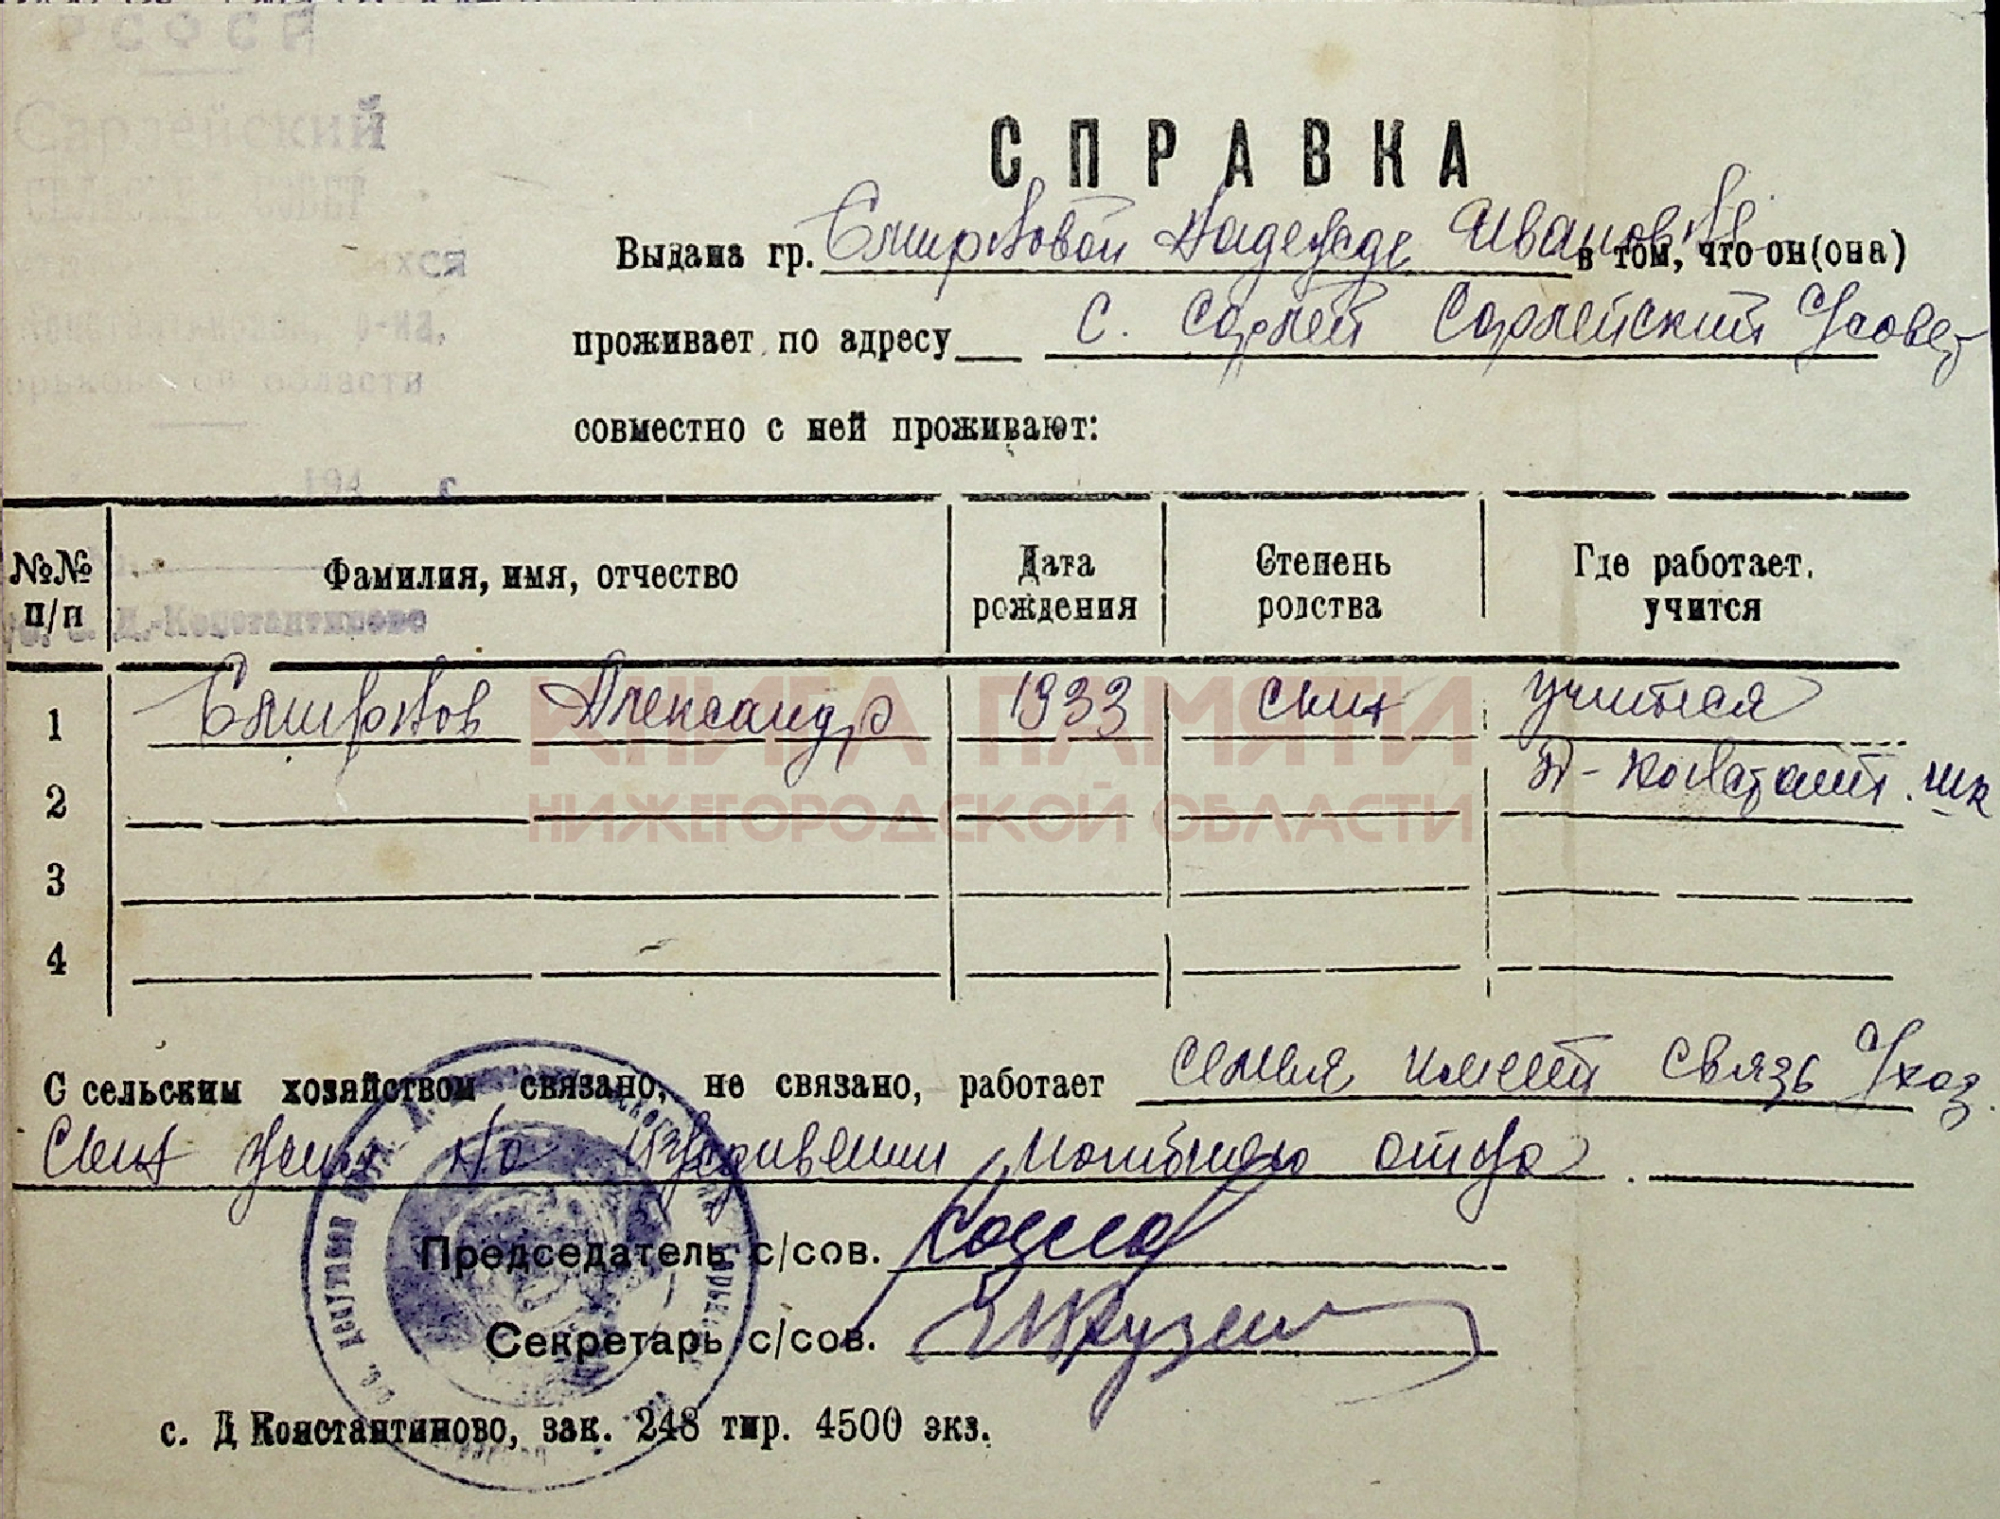 РСФСР
Сарлейский
СЕЛЬСКИЙ СОВЕТ
хся
р-на,
области
194 г.
Д.-Константиново
СПРАВКА
Выдана гр. Смирновой Надежде Ивановне в том, что он(она)
проживает по адресу с. Сарлей Сарлейский с/совет
совместно с ней проживают:
№№ п/п Фамилия, имя, отчество Дата рождения Степень родства Где работает. учится
1 Смирнов Александр 1933 сын учится
2 Д-Констант. шк
3
4
КНИГА ПАМЯТИ
НИЖЕГОРОДСКОЙ ОБЛАСТИ
С сельским хозяйством связано, не связано, работает семья имеет связь с/хоз.
Сын на иждивении погибшего отца.
Председатель с/сов.
Секретарь с/сов.
с. Д Константиново, зак. 248 тир. 4500 экз.